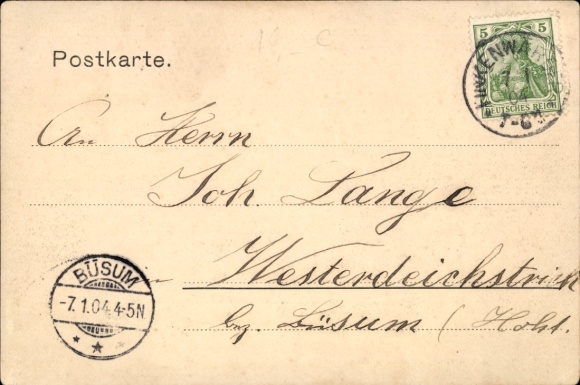 Postkarte.
5 5
DEUTSCHES REICH
FINKENWÄR
7.1.
04
7-8
An Herrn
Joh. Lange
BÜSUM
-7.1.04.4-5N
Westerdeichstrich
bz. Büsum (Holst.